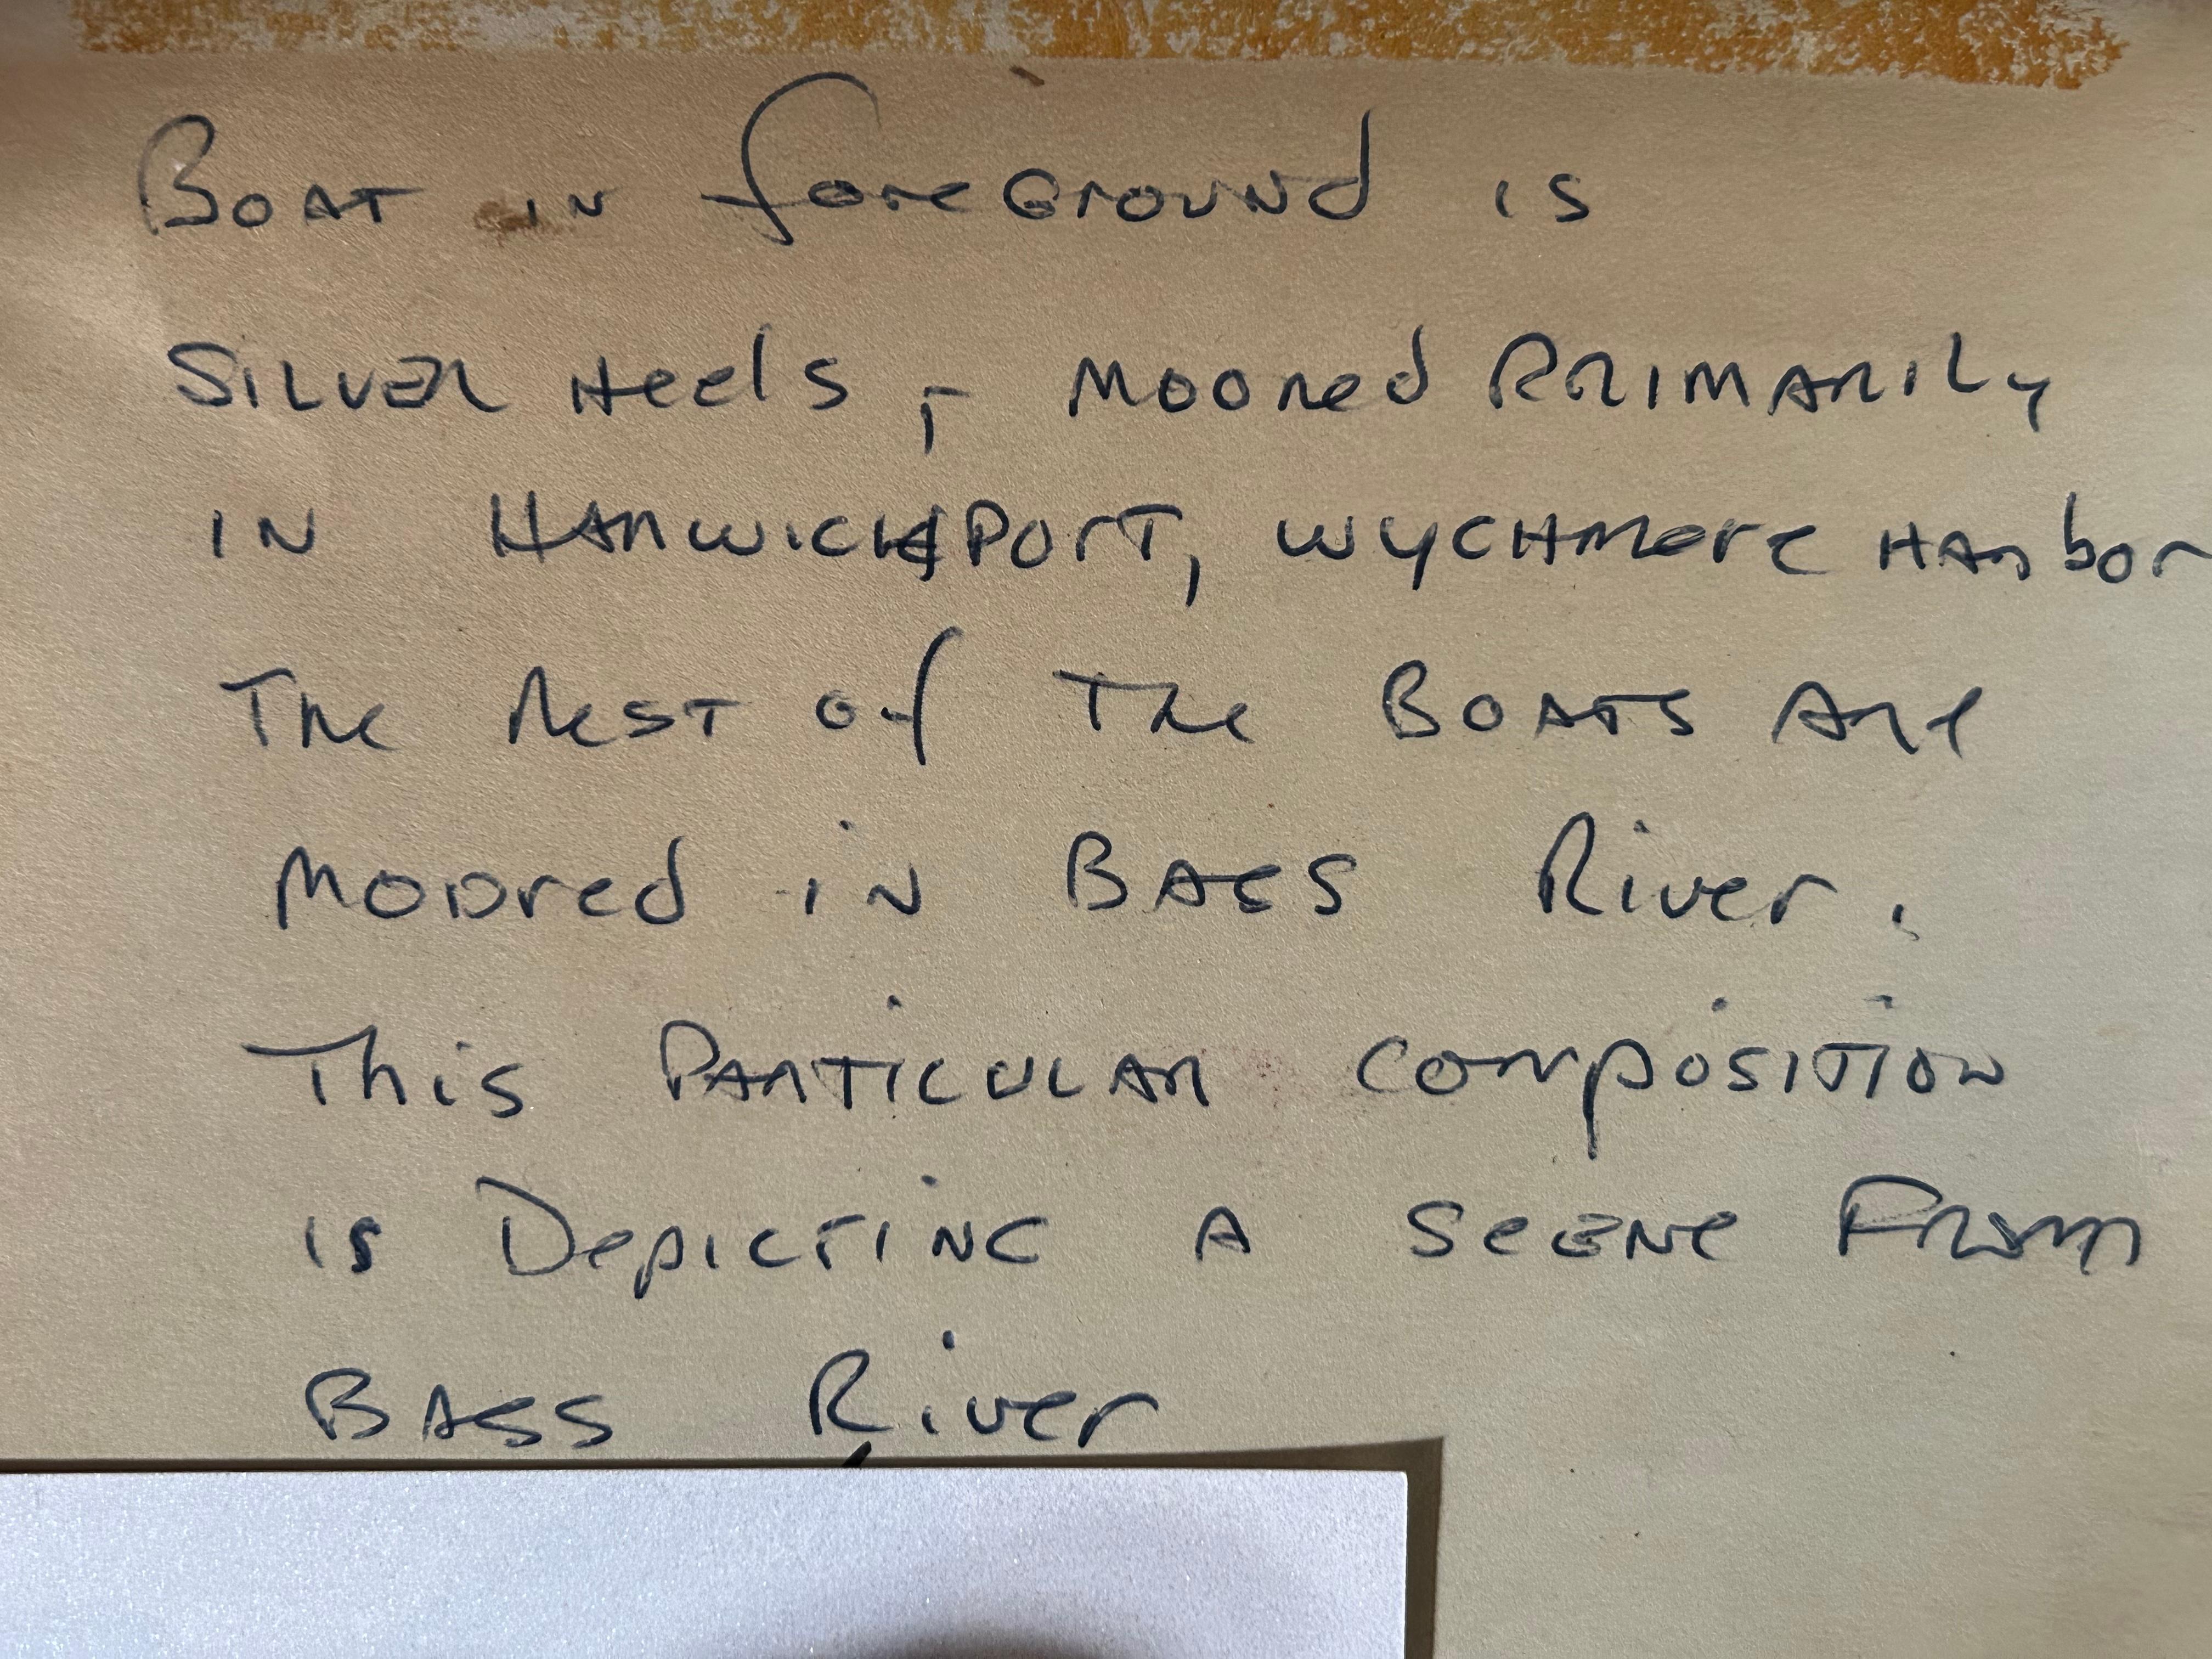 Boat in foreground is
Silver Heels, - moored primarily
in Harwichport, Wychmere Harbor
The rest of the Boats are
moored in Bass River.
This Particular composition
is Depicting a scene From
Bass River